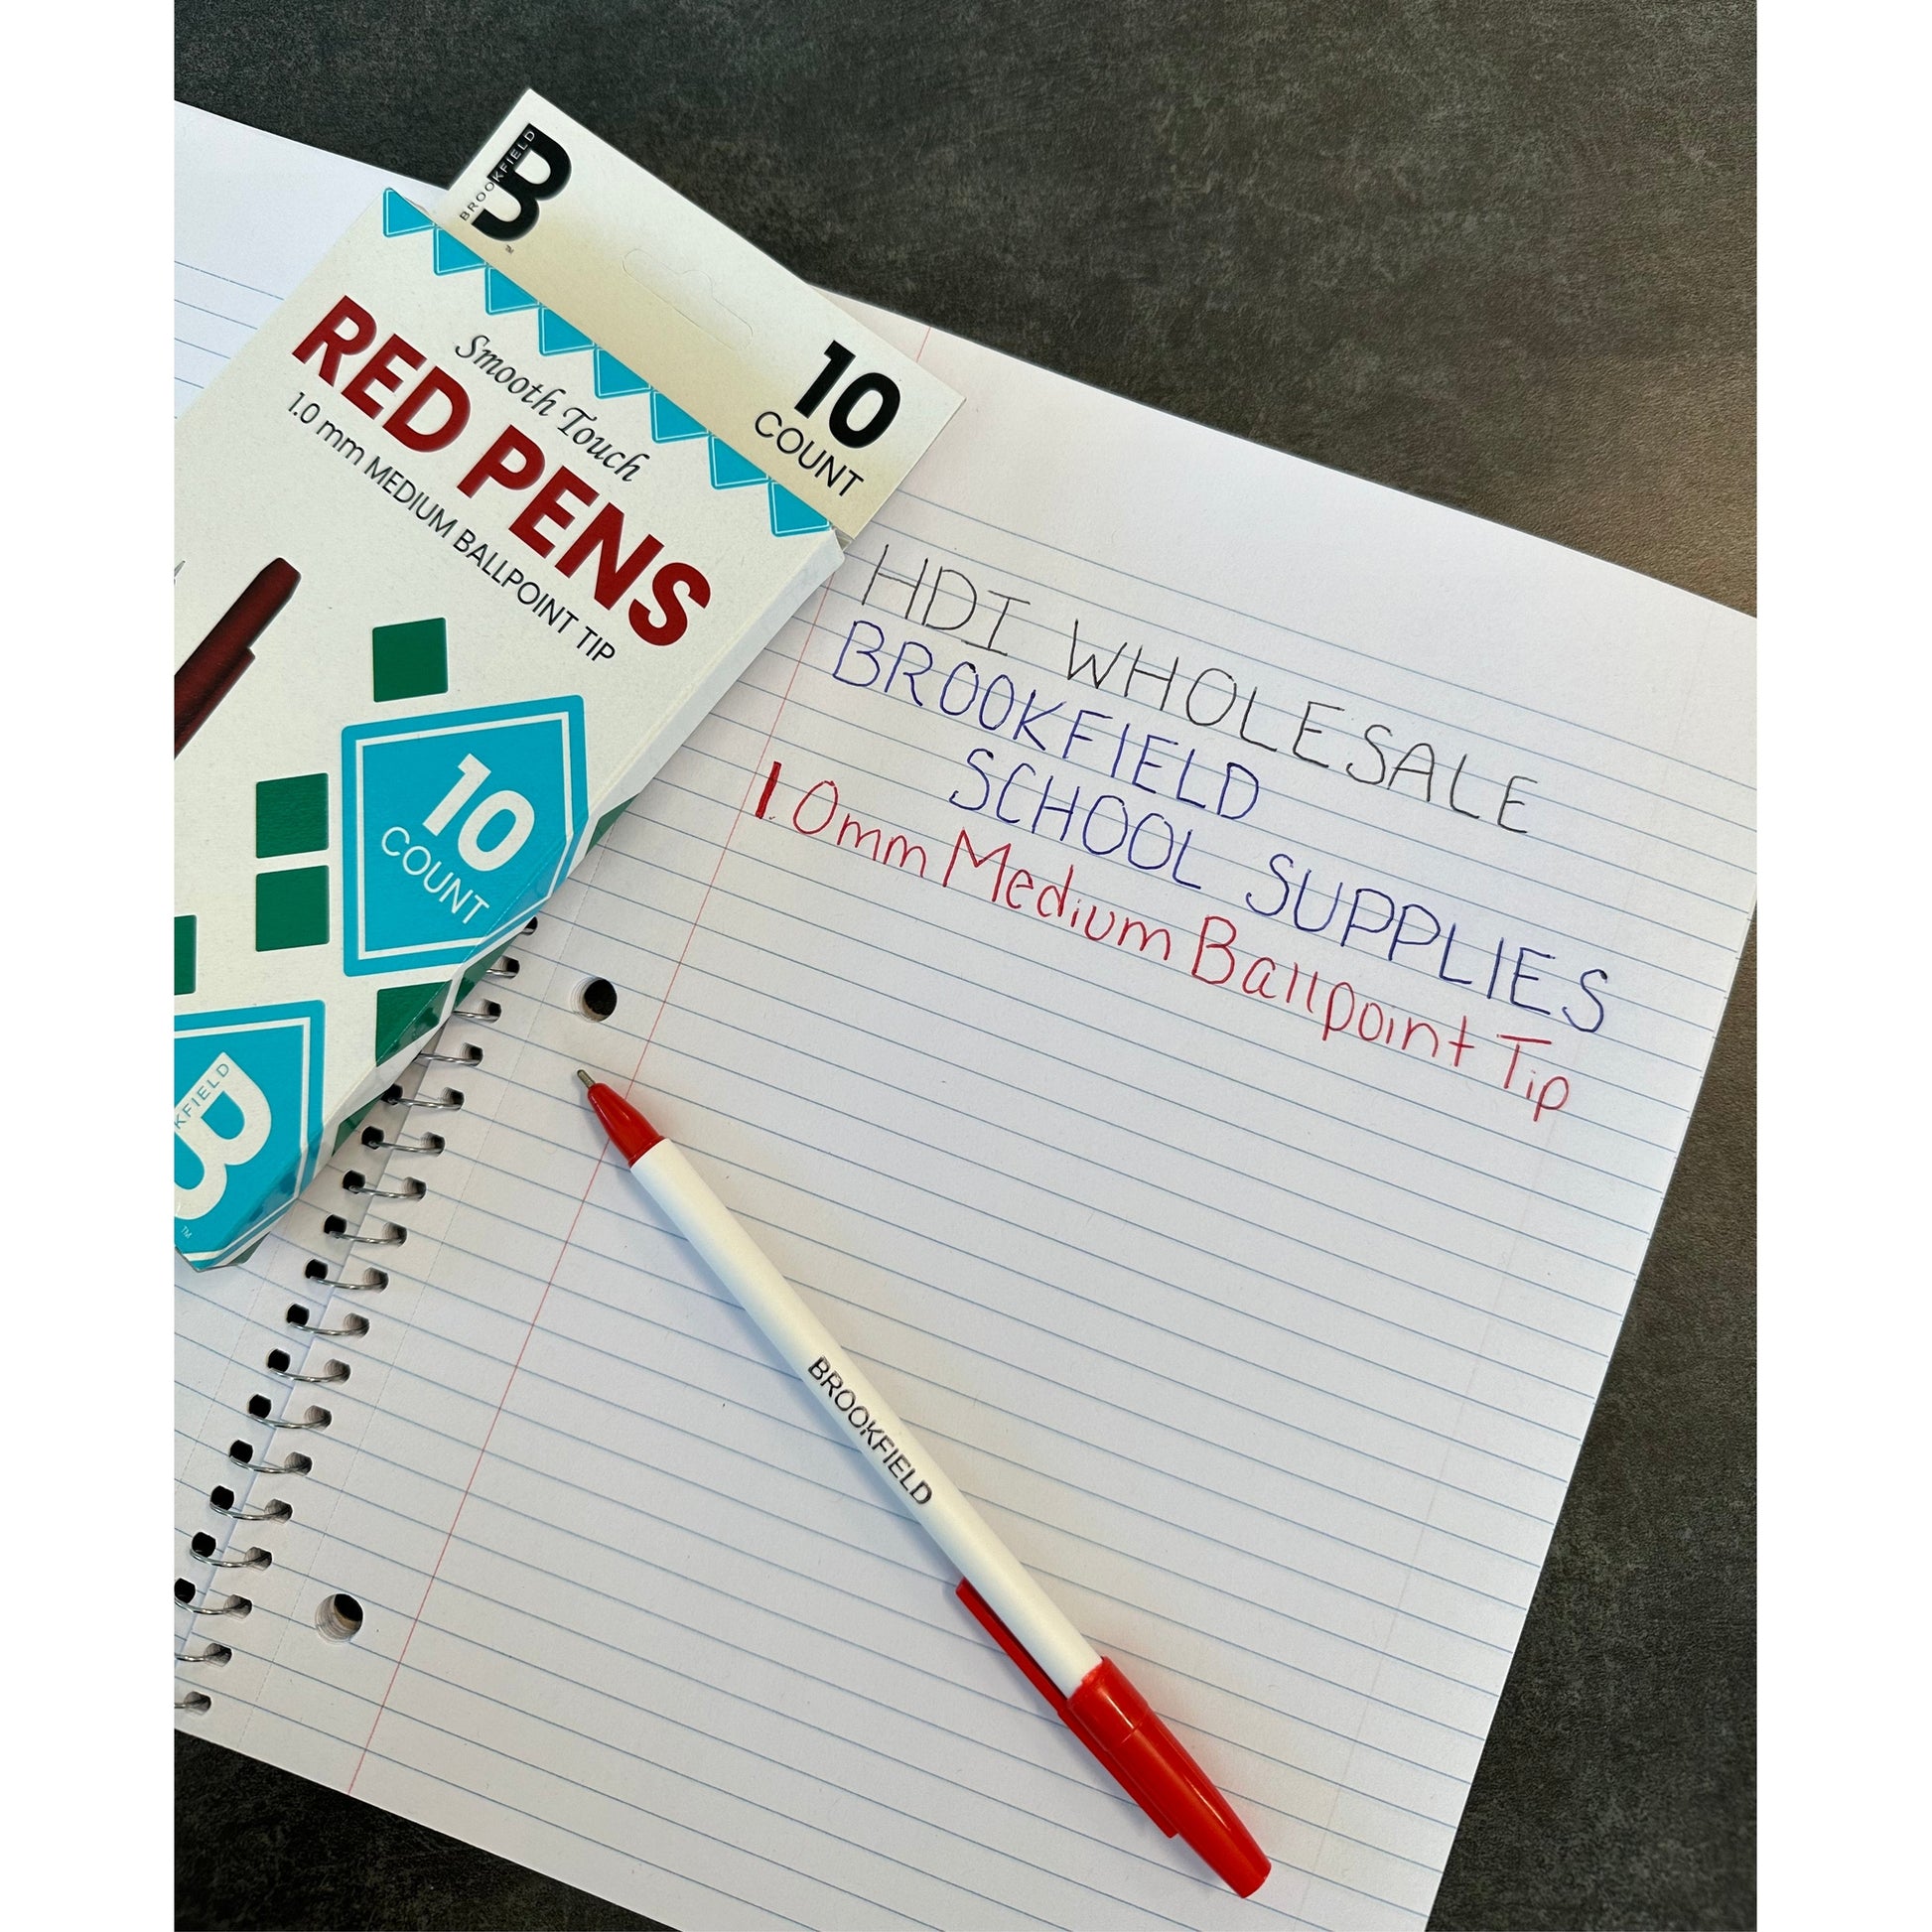 BROOKFIELD
B
TM
10
COUNT
Smooth Touch
RED PENS
1.0 mm MEDIUM BALLPOINT TIP
10
COUNT
KFIELD
B
TM
HDI WHOLESALE
BROOKFIELD
SCHOOL SUPPLIES
1.0mm Medium Ballpoint Tip
BROOKFIELD